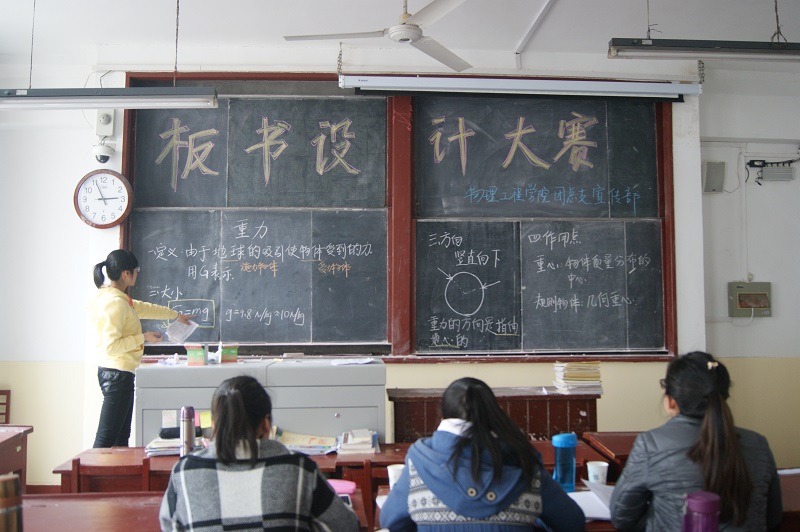 板书设计大赛
物理工程学院团总支宣传部
重力
一.定义 由于地球的吸引使物体受到的力
用G表示 施力物体 受力物体
二.大小
G=mg g=9.8N/kg≈10N/kg
三.方向
竖直向下
重力的方向是指向
地心的
四.作用点
重心:物体质量分布的
中心
规则物体:几何重心